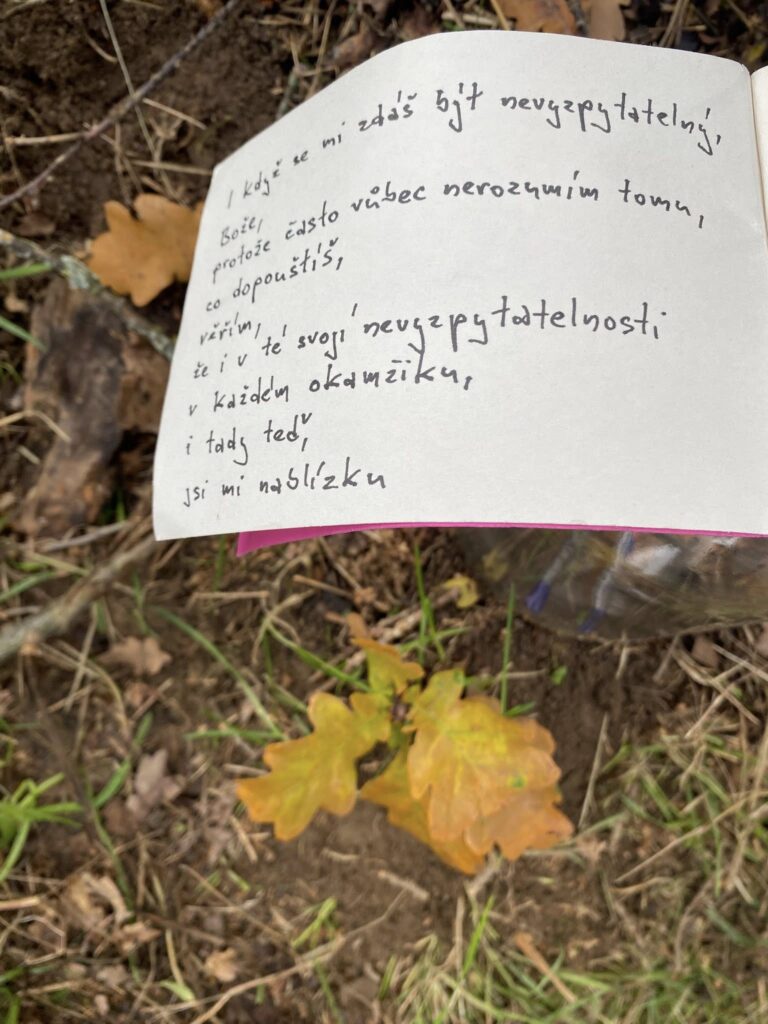 I když se mi zdáš být nevyzpytatelný,
Bože,
protože často vůbec nerozumím tomu,
co dopouštíš,
věřím,
že i v té svojí nevyzpytatelnosti
v každém okamžiku,
i tady teď,
jsi mi nablízku